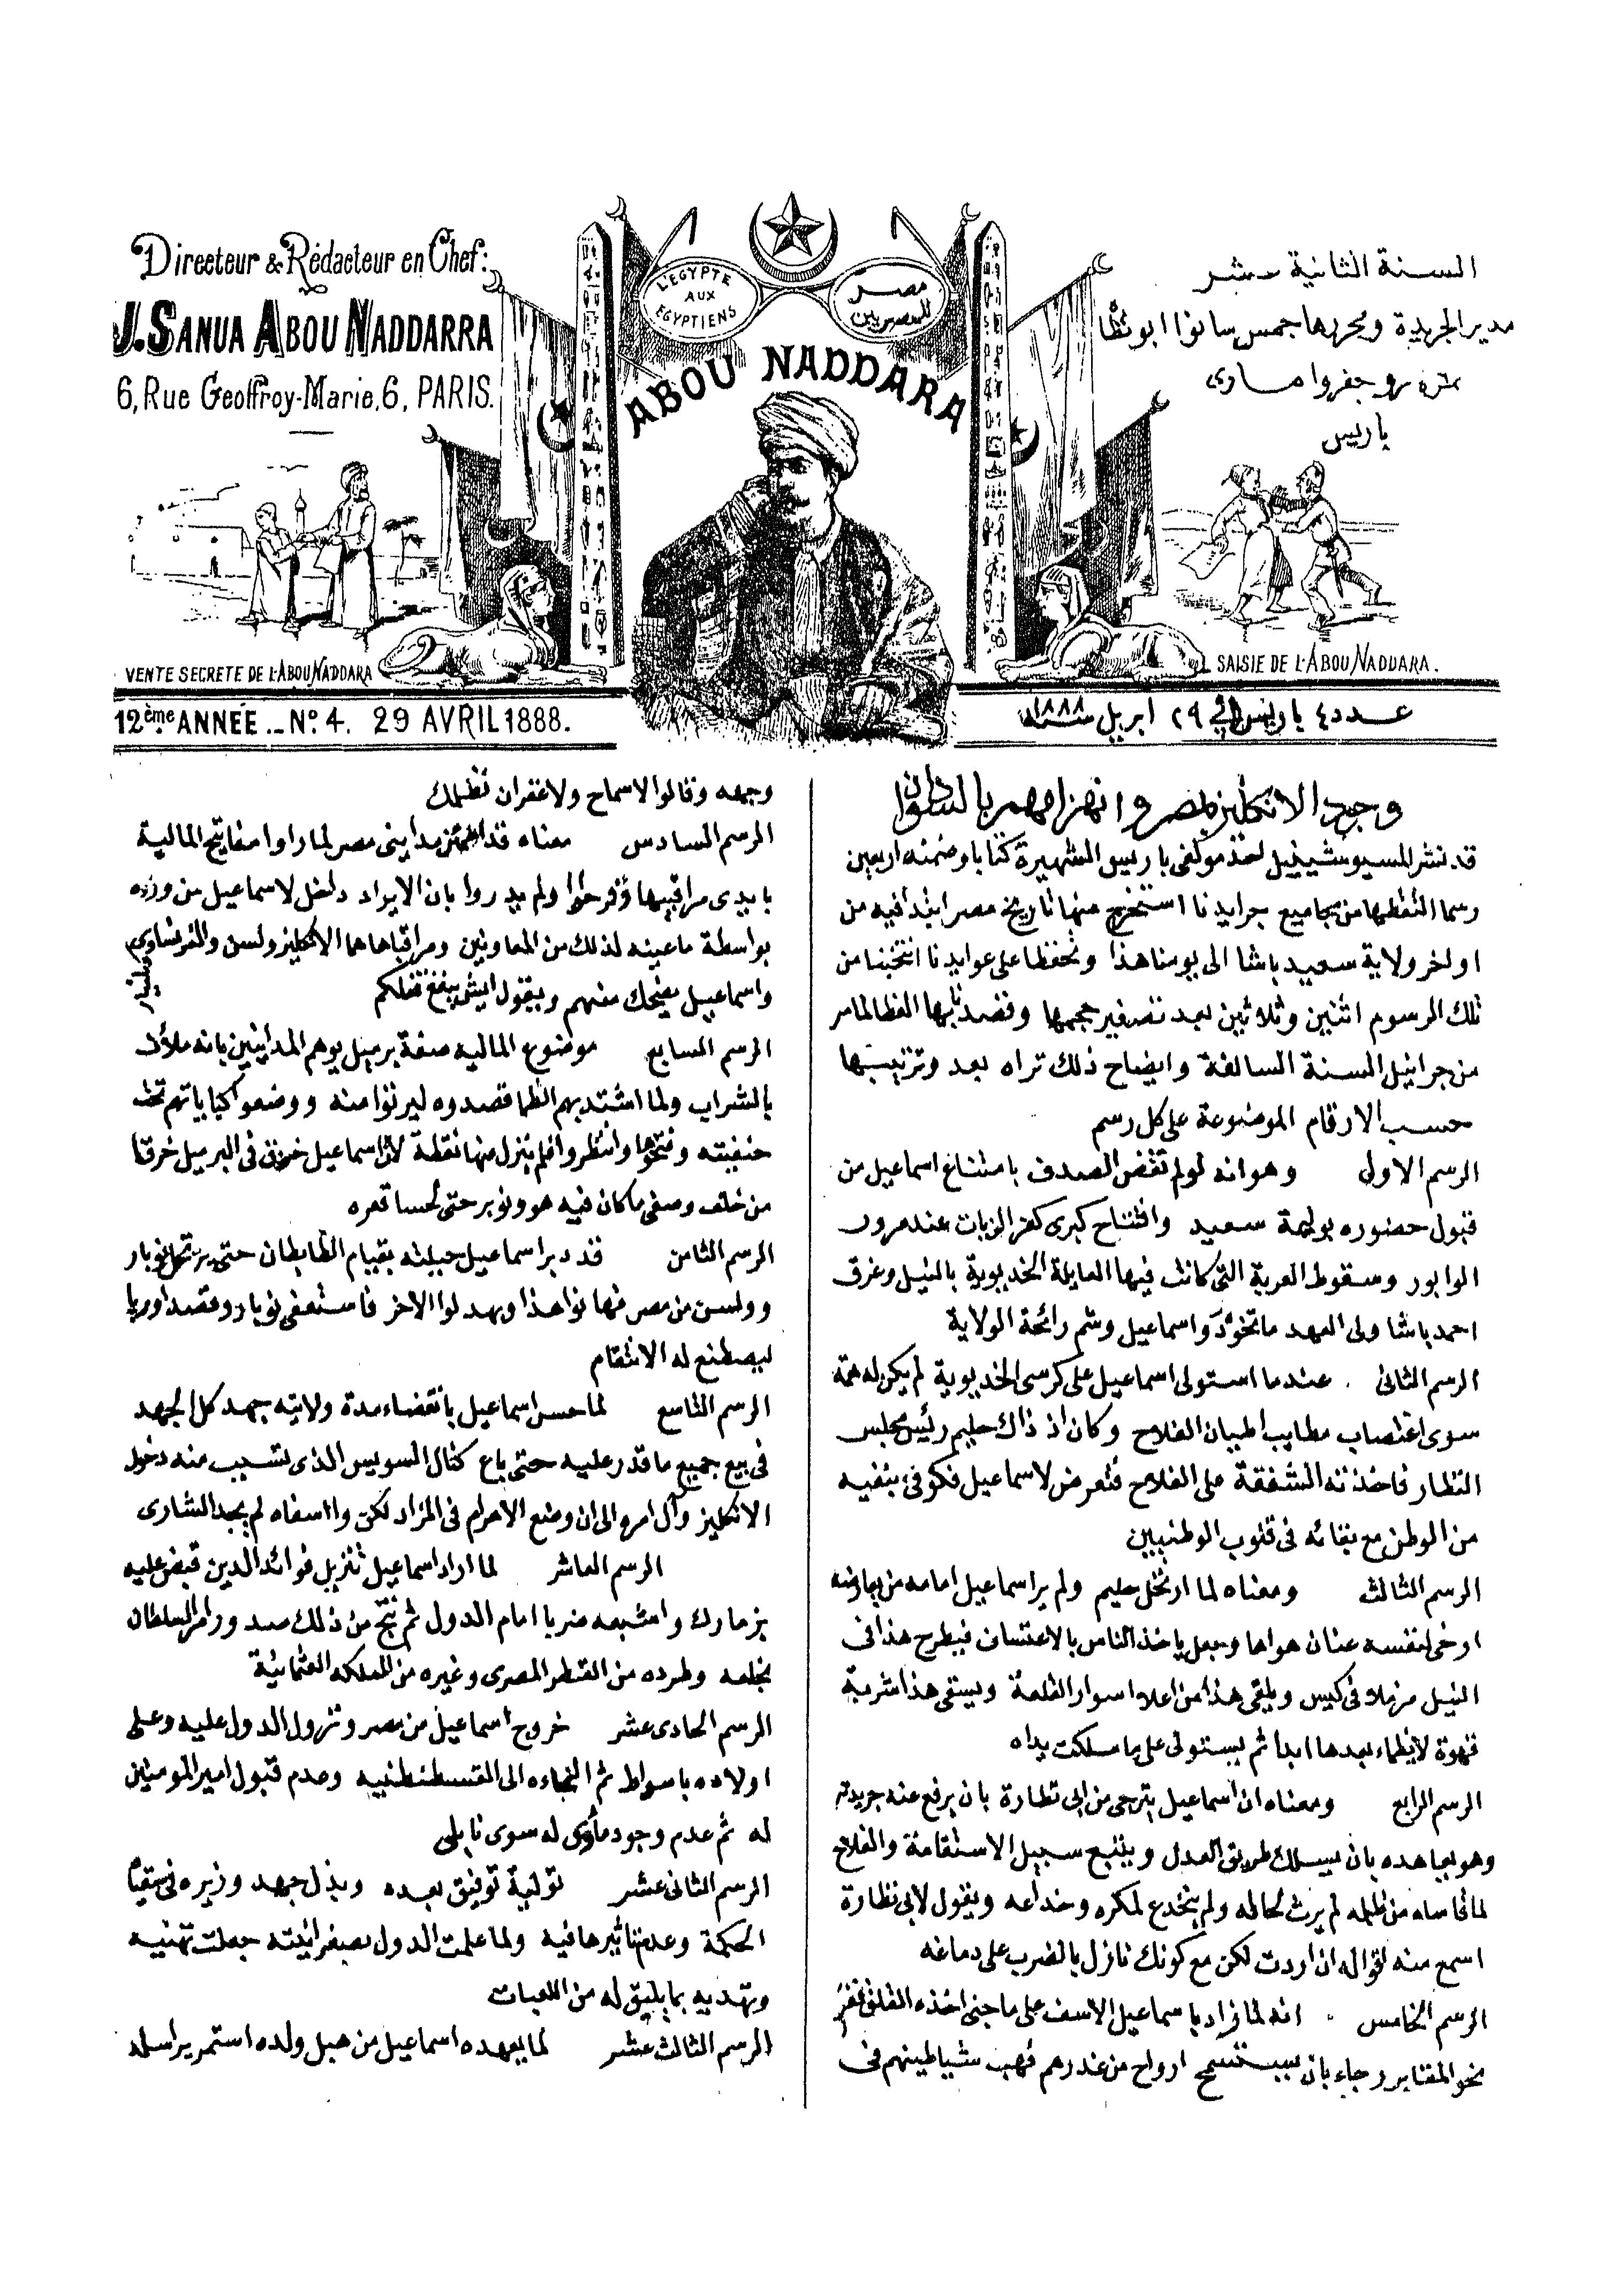 Directeur & Rédacteur en Chef:
J. SANUA ABOU NADDARRA
6, Rue Geoffroy-Marie, 6, PARIS.
L'EGYPTE
AUX
EGYPTIENS
مصر
للمصريين
ABOU NADDARA
السنة الثانية عشر
مدير الجريدة ومحررها جمس سانوا ابو نظا
نمره ٦ رو جفروا مارى
باريس
VENTE SECRETE DE L'ABOU NADDARA
SAISIE DE L'ABOU NADDARA.
12ème ANNÉE._ No. 4. 29 AVRIL 1888.
عدد ٤ باريس فى ٢٩ ابريل سنة ١٨٨٨
وجود الانكليز بمصر وانهزامهم بالسودان
قد نشر المسيو احد مولفى باريس الشهيرة كتابا وضمنه اربعين
رسما التقطها من مجاميع جرايدنا استخرج منها تاريخ مصر ابتدا فيه من
اواخر ولاية سعيد باشا الى يومنا هذا وتحفظا على عوايدنا انتخبنا من
تلك الرسوم اثنين وثلاثين بعد تصغير حجمها وقصدنا بها لما مر
من جرانيل السنة السالفة وايضاح ذلك تراه بعد وترتيبها
حسب الارقام الموضوعة على كل رسم
الرسم الاول وهو انه لو لم تقض الصدف بامتناع اسماعيل من
قبول حضوره بوليمة سعيد وافتتاح كبرى كفر الزيات عند مرور
الوابور وسقوط العربة التى كانت فيها العايلة الخديوية بالنيل وغرق
احمد باشا ولى العهد ما اسماعيل وشم رائحة الولاية
الرسم الثانى عندما استولى اسماعيل على كرسى الخديوية لم يكن له همة
سوى اغتصاب مطايب اطيان الفلاح وكان اذ ذاك حليم رئيس مجلس
النظار فاخذته الشفقة على الفلاح فتعرض لاسماعيل فكوفى بنفيه
من الوطن مع بقائه فى قلوب الوطنيين
الرسم الثالث ومعناه لما ارتحل حليم ولم ير اسماعيل امامه من يعارضه
ارخى لنفسه عنان هواها وجعل ياخذ الناس بالاعتساف فيطرح هذا فى
النيل مزملا فى كيس ويلقى هذا من اعلا اسوار القلعة ويسقى هذا شربة
قهوة لا يظماء بعدها ابدا ثم يستولى على ما ملكت يداه
الرسم الرابع ومعناه ان اسماعيل يترجى من ابى نظارة بان يرفع عنه جريدته
وهو يجاهده بان يسلك طريق العدل ويتبع سبيل الاستقامة والفلاح
لما قاساه من ظلمه لم يرث لحاله ولم ينخدع لمكره وخداعه ويقول لابى نظارة
اسمع منه اقواله ان اردت لكن مع كونك نازل بالضرب على دماغه
الرسم الخامس انه لما زاد باسماعيل الاسف على ما جنى اخذه القلق
نحو المقابر رجاء بان يستسمح ارواح من غدرهم فهبت شياطينهم فى
وجهه وقالوا لاسماح ولا غفران لظلمك
الرسم السادس معناه قد مداينى مصر لما راوا مفاتيح المالية
بايدى مراقبيها وفرحوا ولم يدروا بان الايراد داخل لاسماعيل من وزره
بواسطة ما عينه لذلك من المعاونين ومراقباها هما الانكليز ولسن والفرنساوى
واسماعيل يضحك منهم ويقول ايش ينفع قفلكم
الرسم السابع موضوع المالية صفة برميل يوهم المداينين بانه ملآن
بالشراب ولما اشتد بهم الظما قصدوه ليرتوا منه ووضعوا كباياتهم تحت
حنفيته وفتحوها وانتظروا فلم ينزل منها نقطة لان اسماعيل خرق فى البرميل خرقا
من خلف وصفى ما كان فيه هو ونوبر حتى لحسا قعره
الرسم الثامن قد دبر اسماعيل حيلته بقيام الظابطان حتى نوبار
وولسن من مصر هذا وبهدلوا الاخر فاستعفى نوبار وقصد اوربا
ليصطنع له الانتقام
الرسم التاسع لما حس اسماعيل بانقضاء مدة ولايته جهد كل الجهد
فى بيع جميع ما قدر عليه حتى باع كنال السويس الذى تسبب منه دخول
الانكليز وآل امره الى ان وضع الاهرام فى المزاد لكن وااسفاه لم يجد الشارى
الرسم العاشر لما اراد اسماعيل تنزيل فوائد الدين قبض عليه
بزمارك واشبعه ضربا امام الدول ثم نتج من ذلك صدور امر السلطان
بخلعه وطرده من القطر المصرى وغيره من المملكه العثمانية
الرسم الحادى عشر خروج اسماعيل من مصر ونزول الدول عليه وعلى
اولاده باسواط ثم التجاءه الى القسطنطينيه وعدم قبول امير المومنين
له ثم عدم وجود مأوى له سوى نابلى
الرسم الثانى عشر تولية توفيق بعده وبذل جهد وزيره فى
الحكمة وعدم تاثيرها فيه ولما علمت الدول بصغر جعلت تهنيه
وتهديه بما يليق له من اللعبات
الرسم الثالث عشر لما يعهده اسماعيل من هبل ولده استمر يراسله